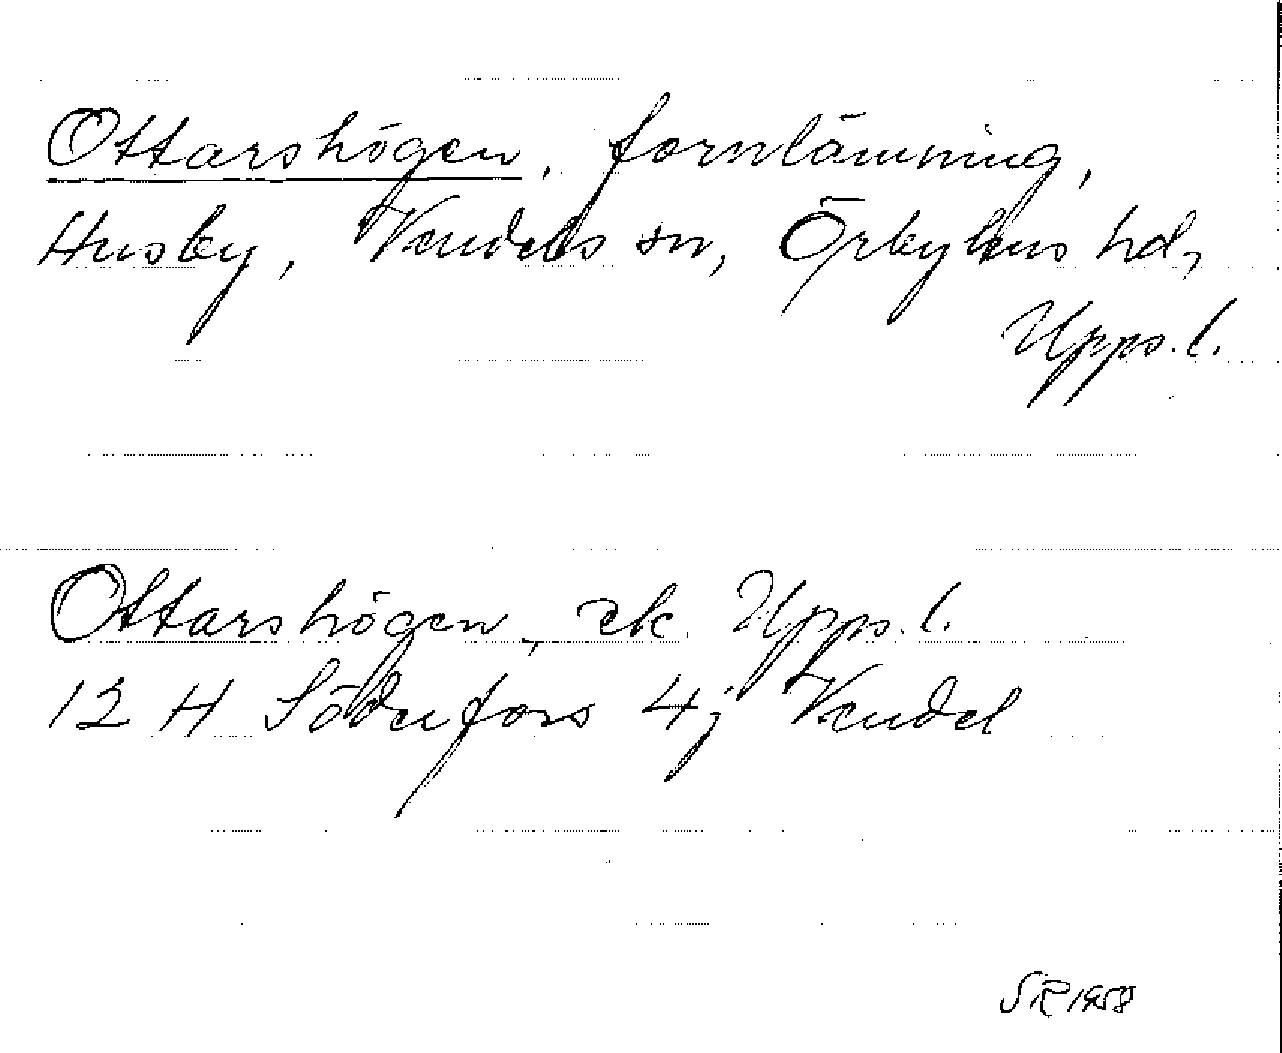 Ottarshögen, fornlämning,
Husby, Vendels sn, Örbyhus hd,
Upps. l.
Ottarshögen, ek. Upps. l.
12 H Söderfors 4j Vendel
SR 1958